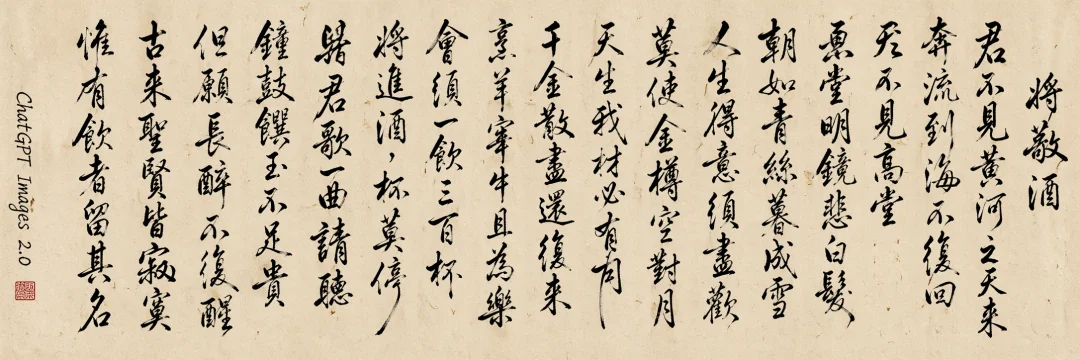 将敬酒
君不見黃河之天来
奔流到海不復回
不見高堂
堂明鏡悲白髮
朝如青絲暮成雪
人生得意須盡歡
莫使金樽空對月
天生我材必有
千金散盡還復来
烹羊宰牛且為樂
會須一飲三百杯
将進酒，杯莫停
君歌一曲請聽
鐘鼓饌玉不足貴
但願長醉不復醒
古来聖賢皆寂寞
惟有飲者留其名
ChatGPT Images 2.0